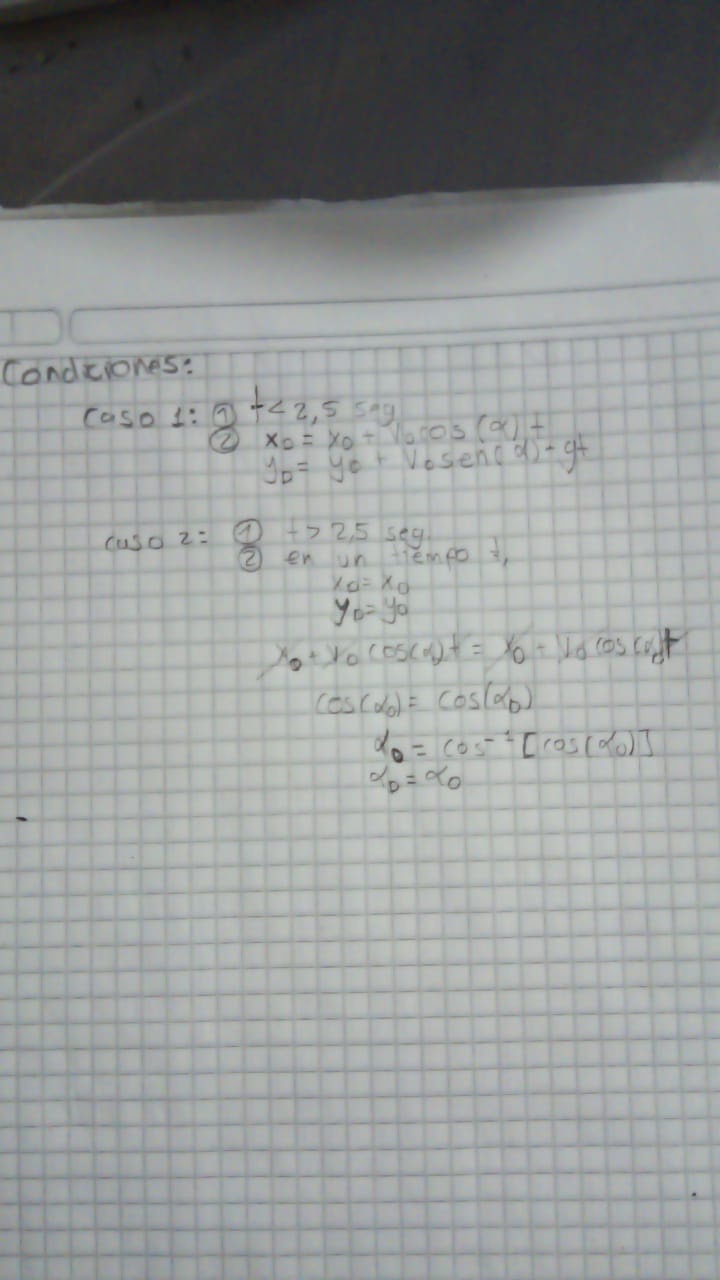 Condiciones:
caso 1: ① t < 2,5 seg
② x₀ = x₀ + V₀ cos (α) t
y₀ = y₀ + V₀ sen(α) - gt
caso 2: ① t > 2,5 seg.
② en un tiempo t,
x₀ = x₀
y₀ = y₀
x₀ + V₀ cos(α₀) t = x₀ + V₀ cos(α₀) t
cos(α₀) = cos(α₀)
α₀ = cos⁻¹ [cos(α₀)]
α₀ = α₀